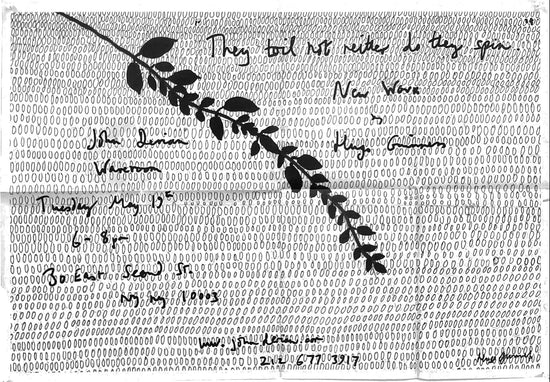 They toil not neither do they spin.
New Work
by
Hugo Guinness
John Derian
Wareroom
Tuesday May 13th
6 - 8 pm
30 East Second St.
NY NY 10003
www. john derian.com
212 677 3917
Hugo Guinness